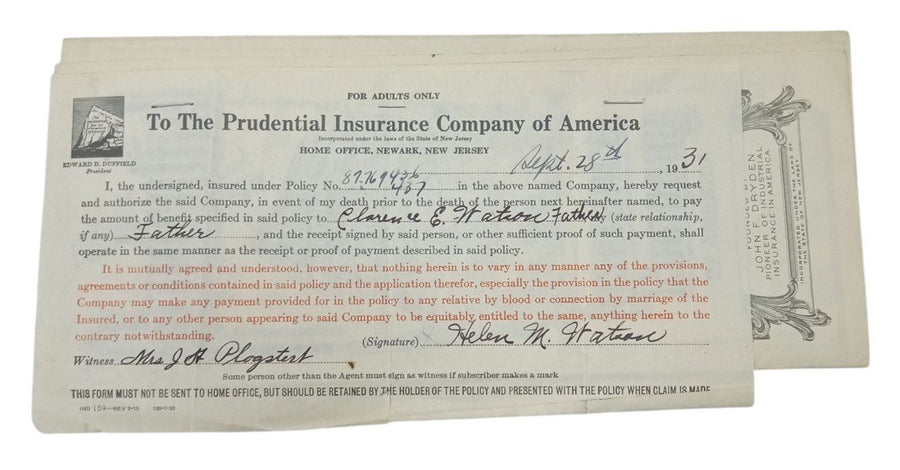 FOR ADULTS ONLY
To The Prudential Insurance Company of America
Incorporated under the laws of the State of New Jersey
HOME OFFICE, NEWARK, NEW JERSEY
EDWARD D. DUFFIELD
President
Sept. 28th, 1931
I, the undersigned, insured under Policy No. 87769436 437 in the above named Company, hereby request
and authorize the said Company, in event of my death prior to the death of the person next hereinafter named, to pay
the amount of benefit specified in said policy to Clarence E. Watson Father (state relationship,
if any) Father, and the receipt signed by said person, or other sufficient proof of such payment, shall
operate in the same manner as the receipt or proof of payment described in said policy.
It is mutually agreed and understood, however, that nothing herein is to vary in any manner any of the provisions,
agreements or conditions contained in said policy and the application therefor, especially the provision in the policy that the
Company may make any payment provided for in the policy to any relative by blood or connection by marriage of the
Insured, or to any other person appearing to said Company to be equitably entitled to the same, anything herein to the
contrary notwithstanding.
(Signature) Helen M. Watson
Witness Mrs J H Plogstert
Some person other than the Agent must sign as witness if subscriber makes a mark
THIS FORM MUST NOT BE SENT TO HOME OFFICE, BUT SHOULD BE RETAINED BY THE HOLDER OF THE POLICY AND PRESENTED WITH THE POLICY WHEN CLAIM IS MADE
IND 159—REV 9-15 100-7-30
JOHN F. DRYDEN
PIONEER OF INDUSTRIAL
INSURANCE IN AMERICA
INCORPORATED UNDER THE LAWS OF
THE STATE OF NEW JERSEY